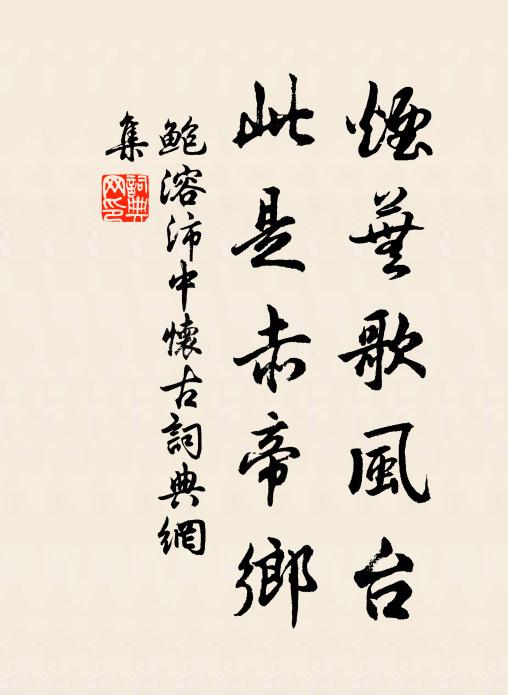 煙蕪歌風台
此是赤帝鄉
鮑溶沛中懷古詞典網
集
詞典網印